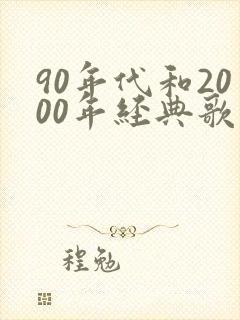 90年代和20
00年経典歌
程勉